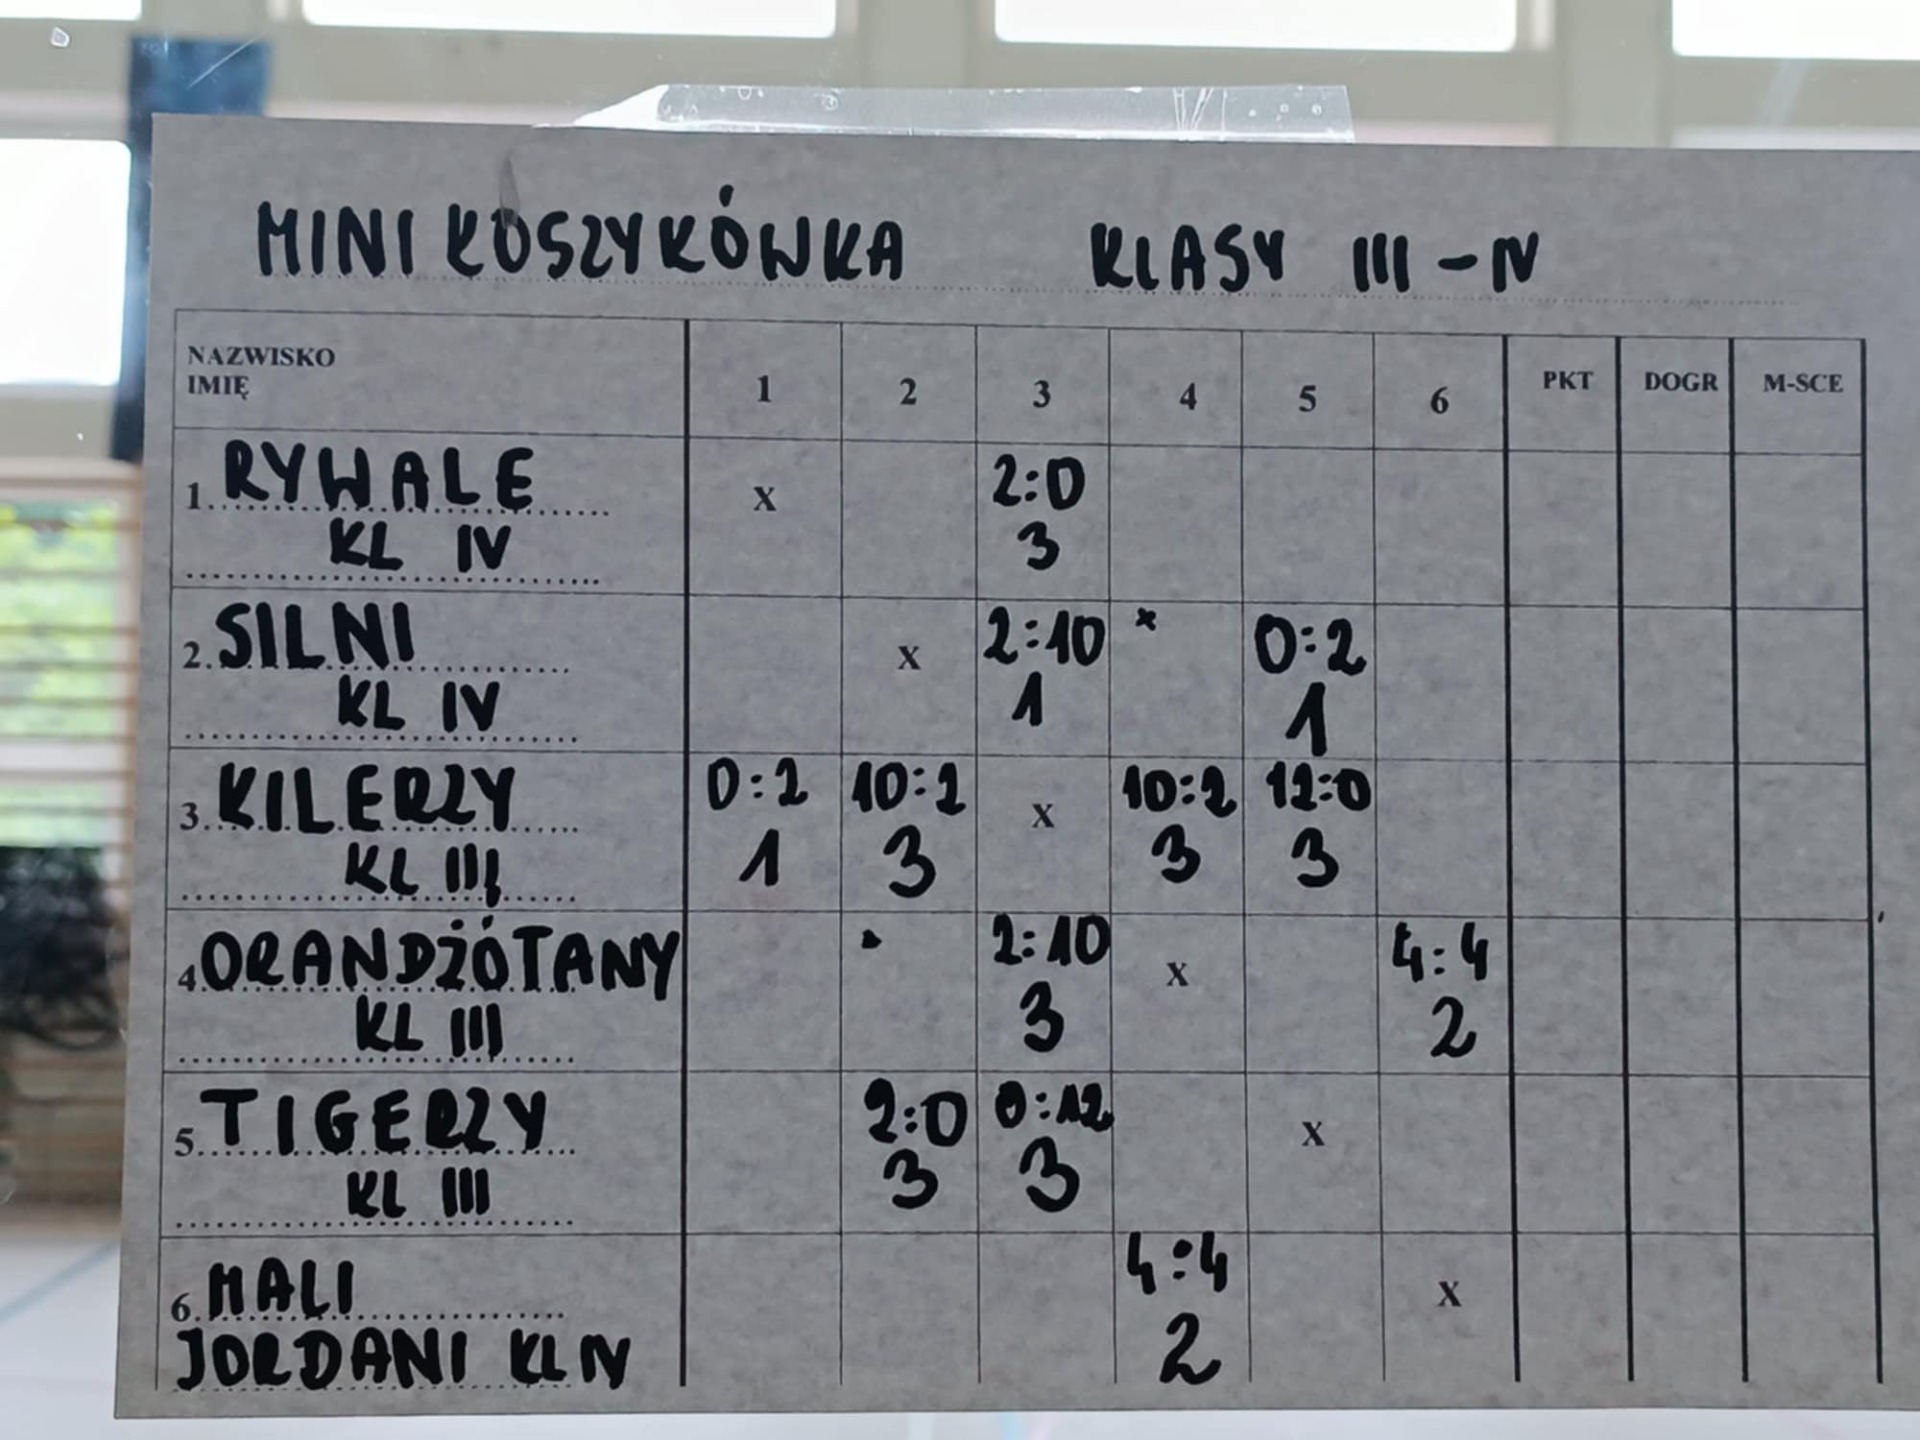 MINI KOSZYKÓWKA KLASY III - IV
NAZWISKO IMIĘ 1 2 3 4 5 6 PKT DOGR M-SCE
1. RYWALE x 2:0
KL IV 3
2. SILNI x 2:10 x 0:2
KL IV 1 1
3. KILERZY 0:2 10:2 x 10:2 12:0
KL III 1 3 3 3
4. ORANDŻÓTANY 2:10 x 4:4
KL III 3 2
5. TIGERZY 2:0 0:12 x
KL III 3 3
6. MALI 4:4 x
JORDANI KL IV 2